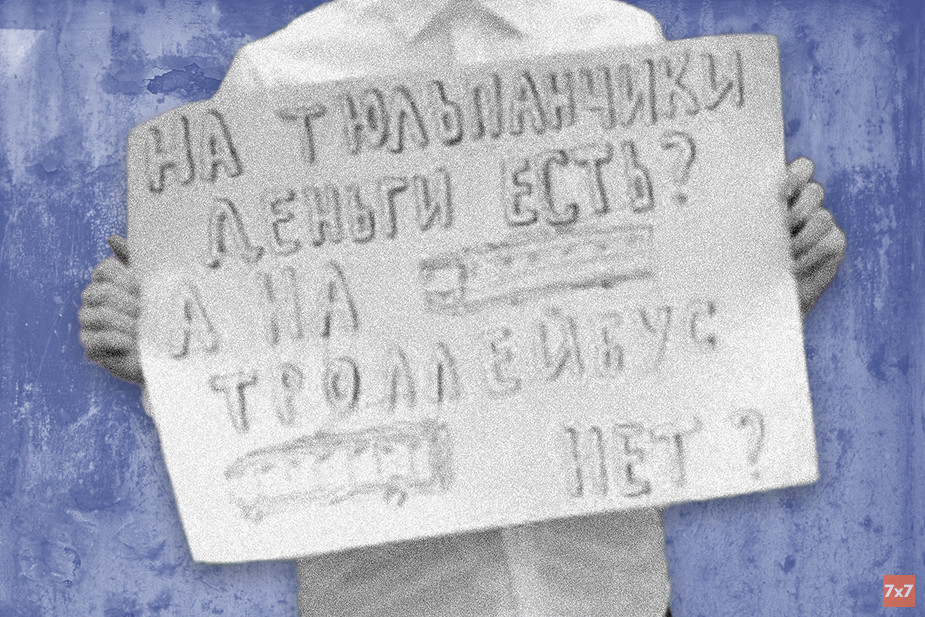 НА ТЮЛЬПАНЧИКИ
ДЕНЬГИ ЕСТЬ?
А НА
ТРОЛЛЕЙБУС
НЕТ?
7x7